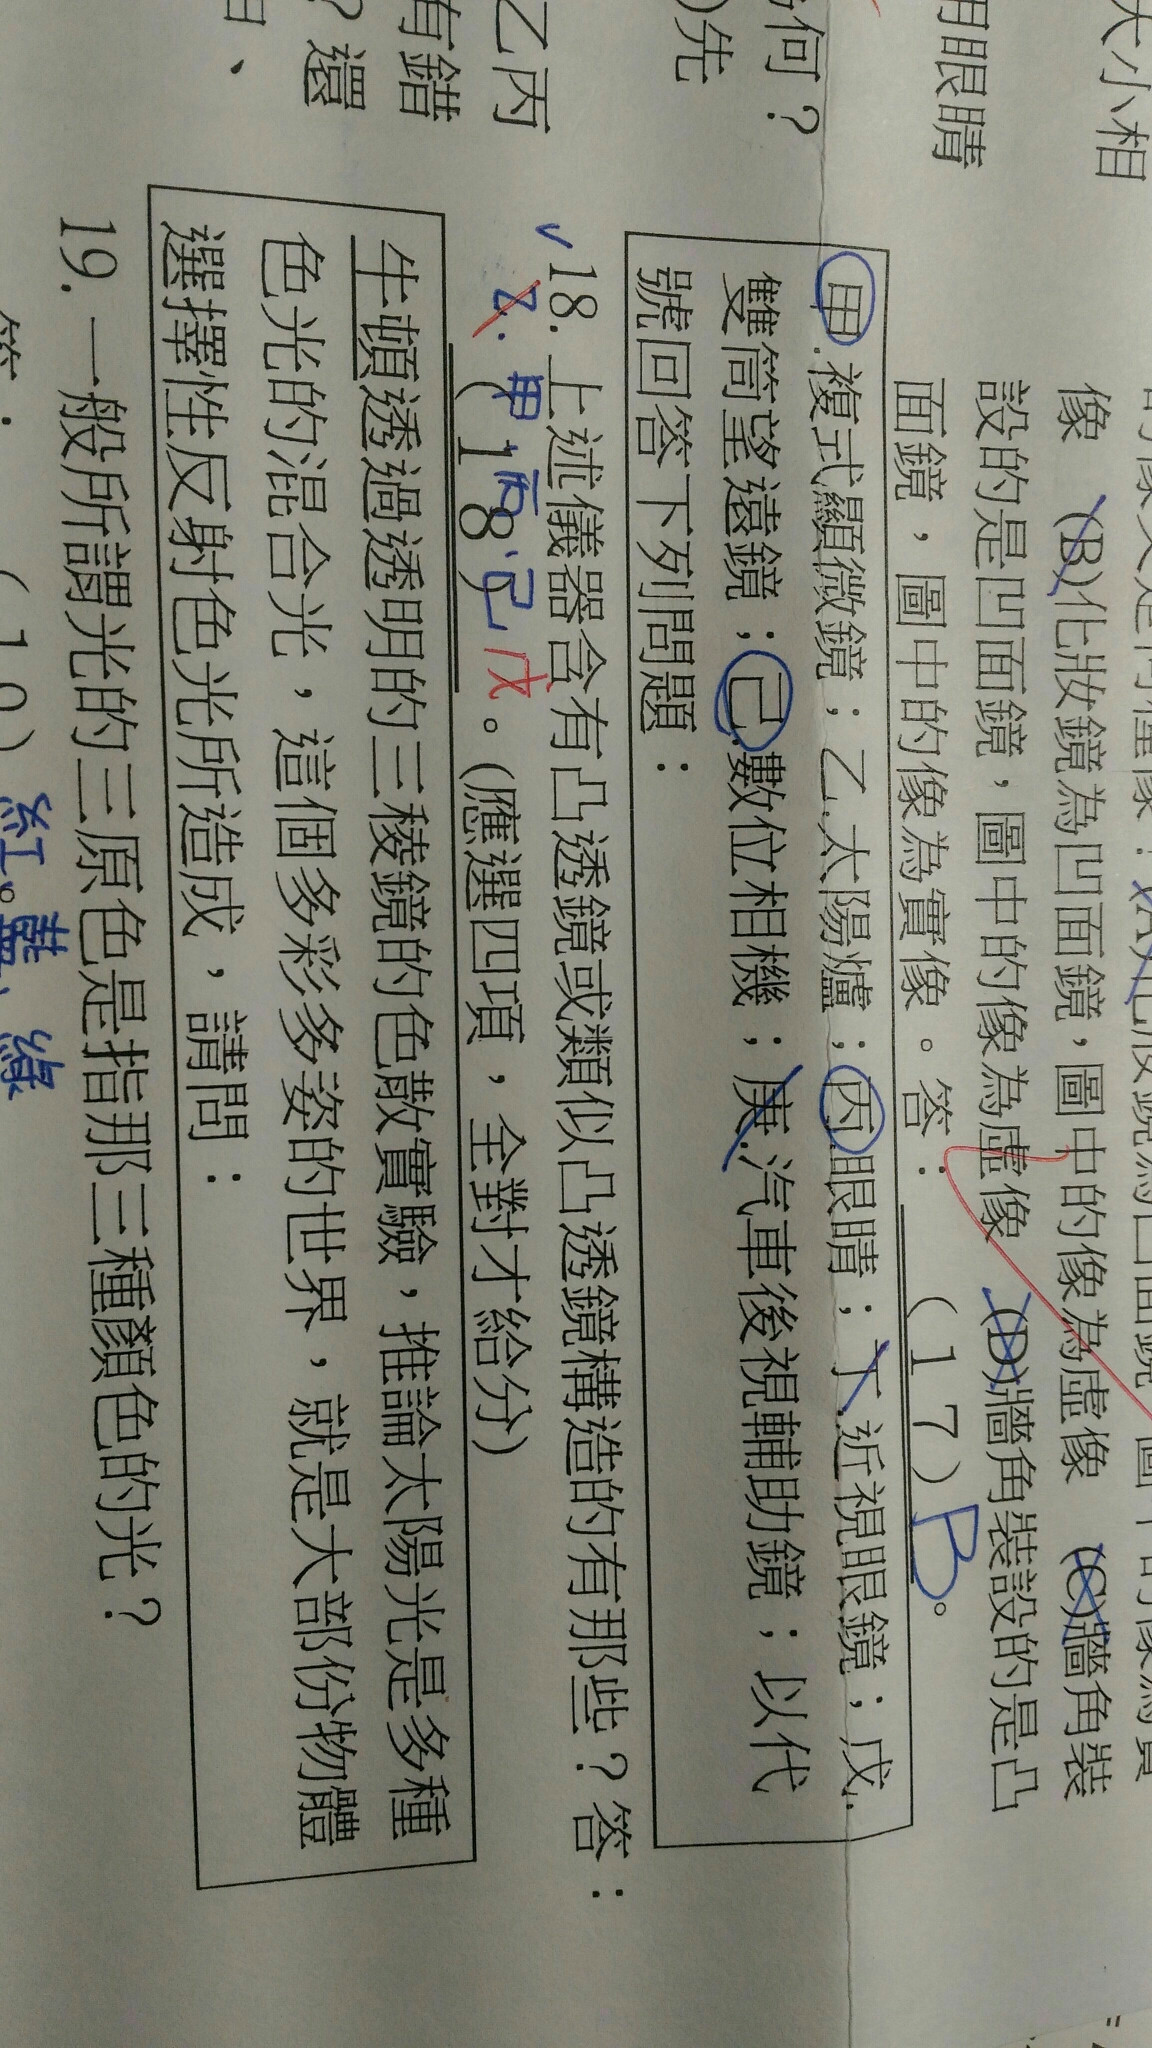 大小相
用眼睛
何？
)先
乙丙
有錯
？還
、
像　(B)化妝鏡為凹面鏡，圖中的像為虛像　(C)牆角裝
設的是凹面鏡，圖中的像為虛像　(D)牆角裝設的是凸
面鏡，圖中的像為實像。答：(17)B。
甲.複式顯微鏡；乙.太陽爐；丙.眼睛；丁.近視眼鏡；戊.
雙筒望遠鏡；己.數位相機；庚.汽車後視輔助鏡；以代
號回答下列問題：
18.上述儀器含有凸透鏡或類似凸透鏡構造的有那些？答：
乙.甲、丙、己 戊
(18)。(應選四項，全對才給分)
牛頓透過透明的三稜鏡的色散實驗，推論太陽光是多種
色光的混合光，這個多彩多姿的世界，就是大部份物體
選擇性反射色光所造成，請問：
19.一般所謂光的三原色是指那三種顏色的光？
答：(19)紅。藍、綠